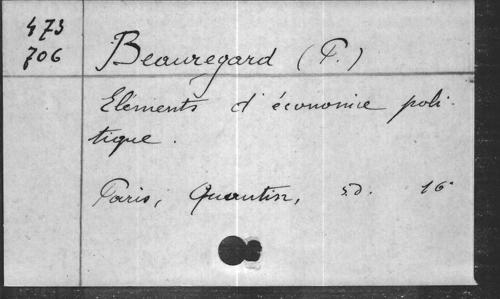 473
706
Beauregard (P.)
Eléments d'économie poli-
tique.
Paris, Quantin, s.d. 16°